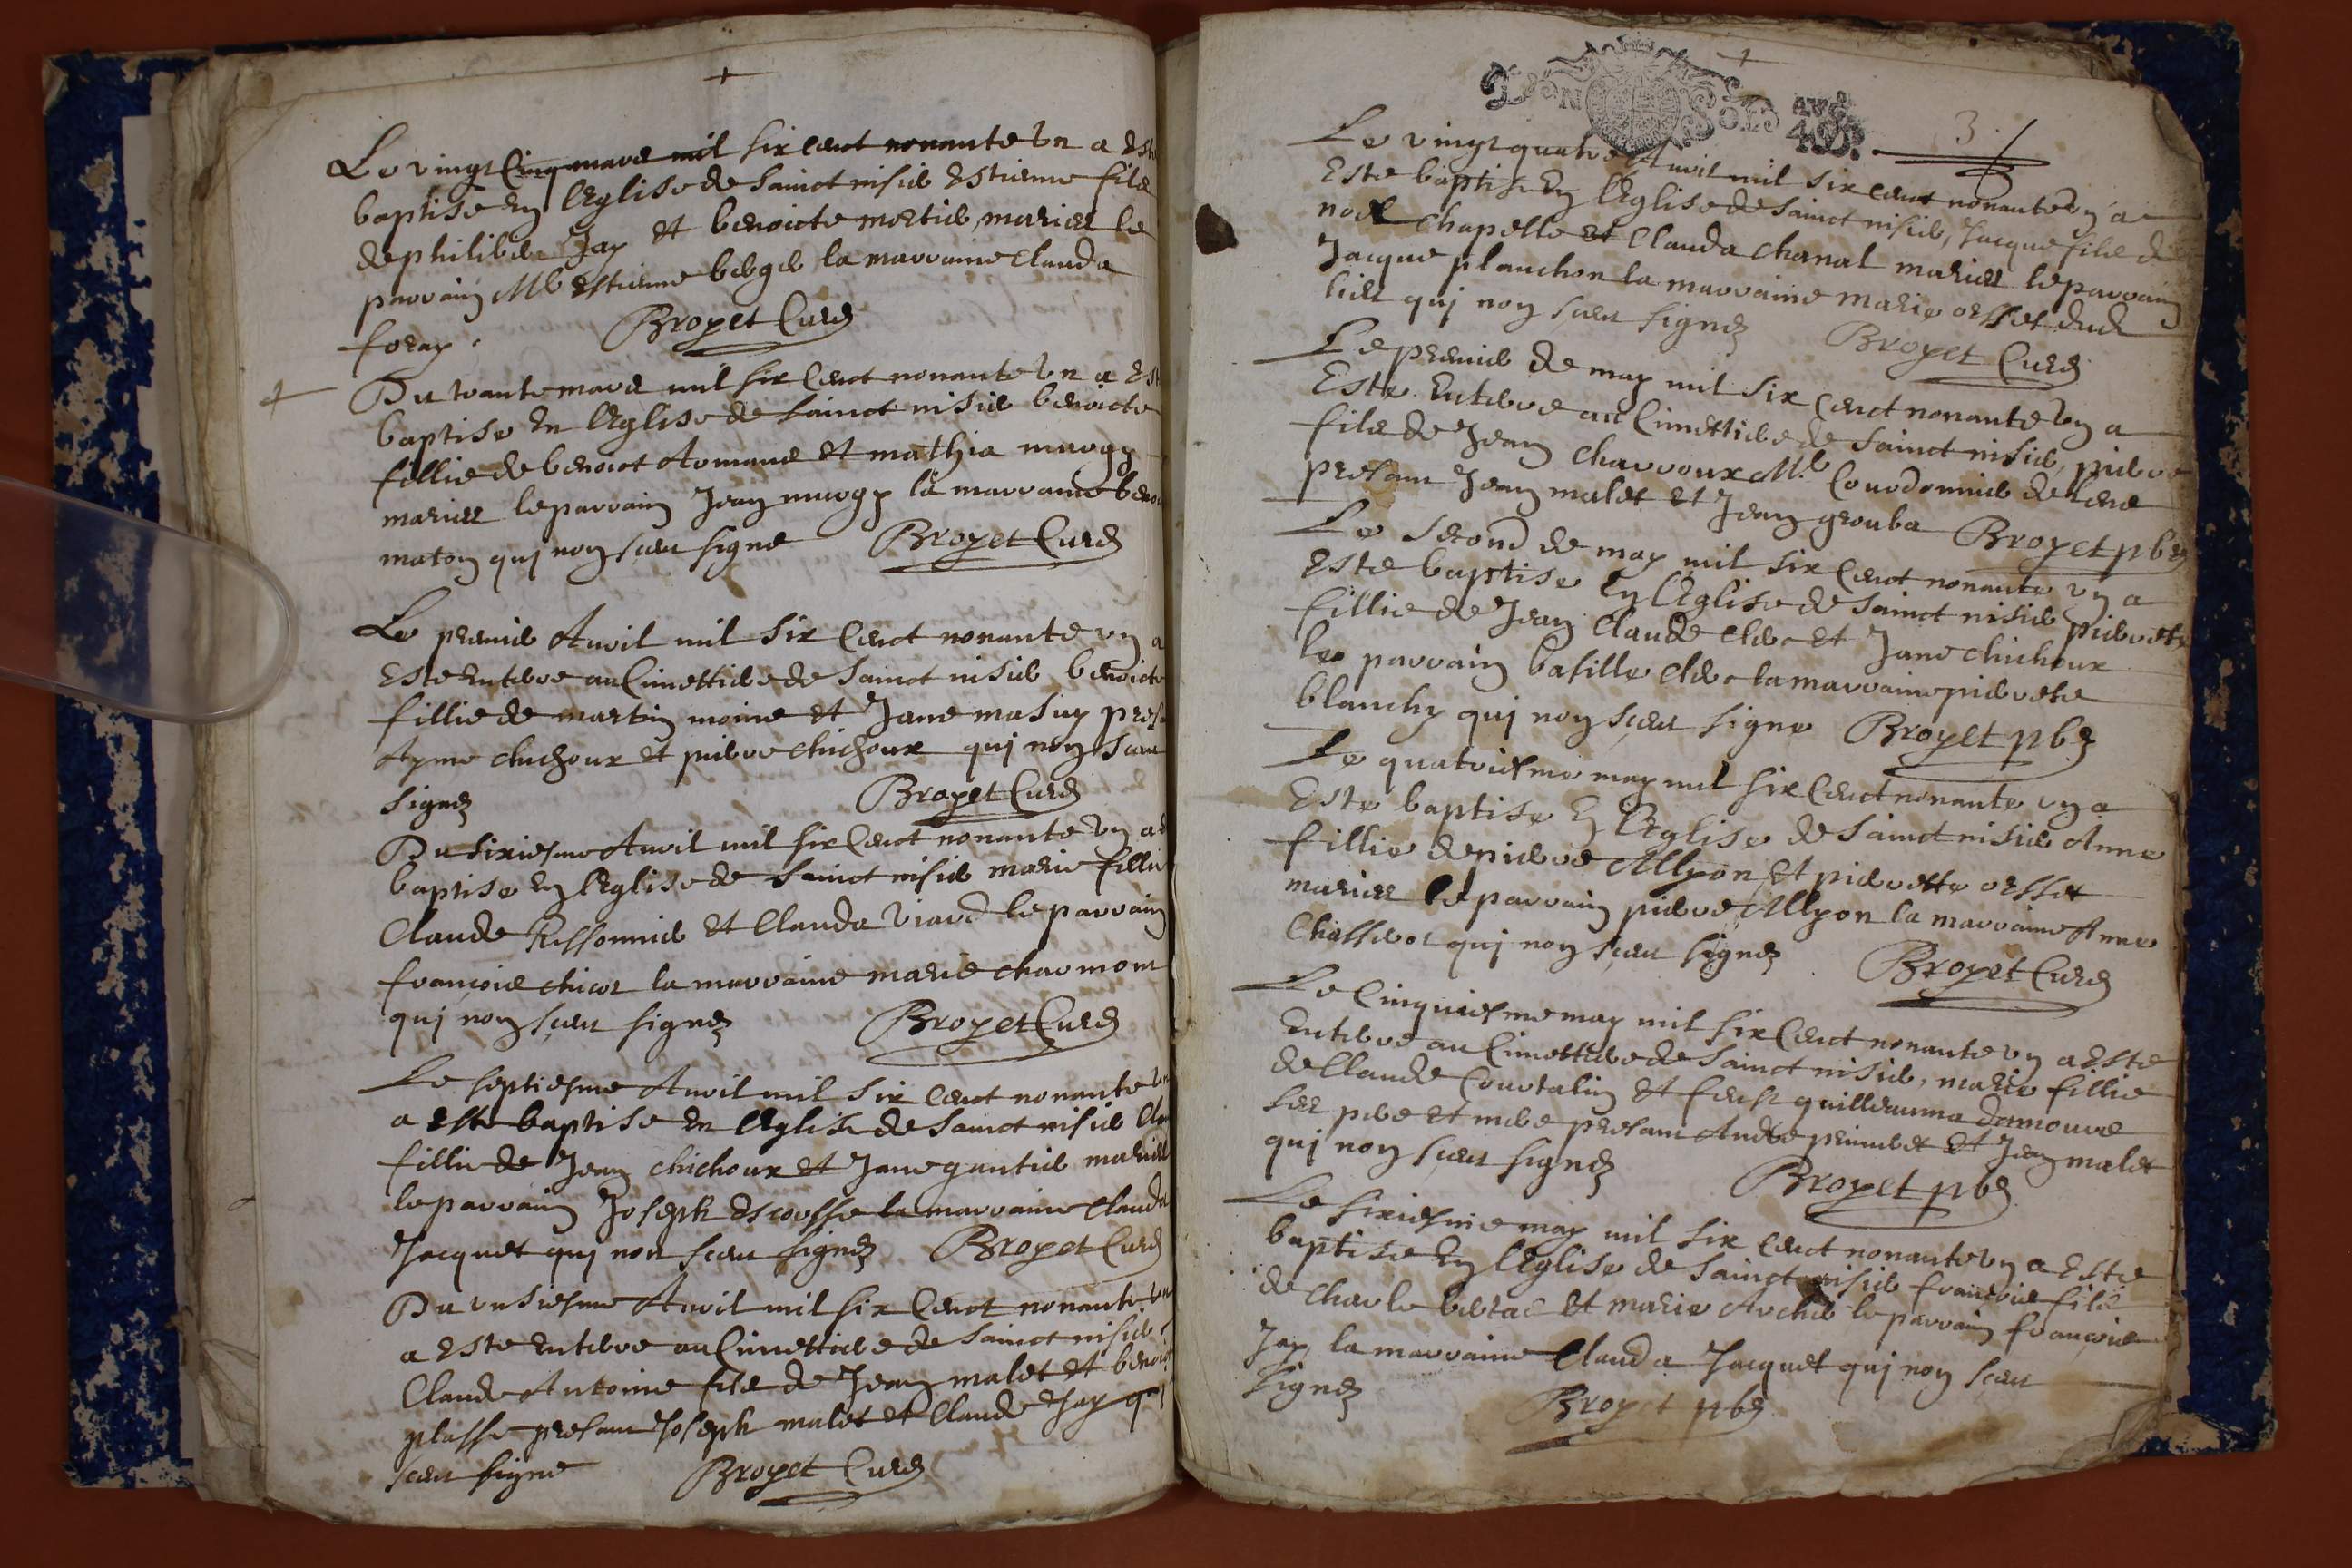 Le vingt Cinq mars mil six cent nonante vn a este
baptise en l'Eglise de sainct nisier Estienne fils
de philiber Jay et benoicte mortier, mariez le
parrain Mr Estienne berger la marraine Clauda
foray. Broyet Curé
Du trante mars mil six Cent nonante vn a est
baptise En l'Eglise de sainct nisier benoicte
fillie de benoict Romans et mathia murgy
mariez le parrain Jean murgy la marraine benoi
maton qui non sceu signe Broyet Curé
Le premier Auril mil six Cent nonante vn a
Este Enterre au Cimettiere de Sainct nisier benoicte
fillie de martin moine et Jane masuy presa
Ayme chichoux et pierre chichoux qui non sceu
signé Broyet Curé
Du sixiesme Auril mil six Cent nonante vn a e
baptise En l'Eglise de Sainct nisier marie fillie
Claude Ressonnier et Clauda Viard le parrain
françois chicot la marraine marie charmont
qui non sceu signé Broyet Curé
Le septiesme Auril mil six cent nonante vn
a este baptise En l'Eglise de Sainct nisier Cla
fillie de Jean chichoux et Jane gantier mariez
le parrain Joseph Escoffie la marraine Clauda
Jacquet qui non sceu signé Broyet Curé
Du vnsiesme Auril mil six Cent nonante vn
a Este Enterre au Cimettiere de Sainct nisier
Claude Antoine fils de Jean malet et benoi
plasse presant Joseph malet et Claude Jay qui
sceu signe Broyet Curé
DeuN Sols
4 D. 3
Le vingt quatre Auril mil six cent nonante vn a
Este baptise En l'Eglise de sainct nisier, Jacque fils de
noel Chapelle et Clauda Chanal mariez le parrain
Jacque planchon la marraine marie orsset dud
lieu qui non sceu signé Broyet Curé
Le premier de may mil six Cent nonante vn a
Este Enterre au Cimettiere de Sainct nisier, pierre
fils de Jean Charroux Mr Courdonnier de
presant Jean malet et Jean grouba Broyet pbr
Le second de may mil six Cent nonante vn a
Este baptise En l'Eglise de Sainct nisier pierrete
fillie de Jean Claude Clerc et Jane Chichoux
le parrain basille Clerc la marraine pierrete
blanchy qui non sceu signe Broyet pbr
Le quatriesme may mil six Cent nonante vn a
Este baptise En l'Eglise de Sainct nisier Anne
fillie de pierre Allyon Et pierrette orsset
mariez le parrain pierre Allyon la marraine Anne
Chasserot qui non sceu signé Broyet Curé
Le Cinquiesme may mil six Cent nonante vn a Este
Enterre au Cimettiere de Sainct nisier, marie fillie
de Claude Courtalin et feust guilleauma
ses pere et mere presant Andre primbet Et Jean malet
qui non sceu signé Broyet pbr
Le sixiesme may mil six Cent nonante vn a Este
baptise En l'Eglise de Sainct nisier françois fils
de Charle et marie Archer le parrain françois
Jay la marraine Clauda Jacquet qui non sceu
signé Broyet pbr